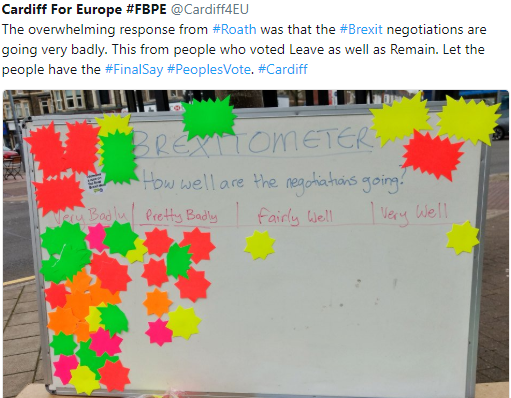 Cardiff For Europe #FBPE @Cardiff4EU
The overwhelming response from #Roath was that the #Brexit negotiations are
going very badly. This from people who voted Leave as well as Remain. Let the
people have the #FinalSay #PeoplesVote. #Cardiff
BREXITOMETER
How well are the negotiations going.
Very Badly Pretty Badly Fairly Well Very Well